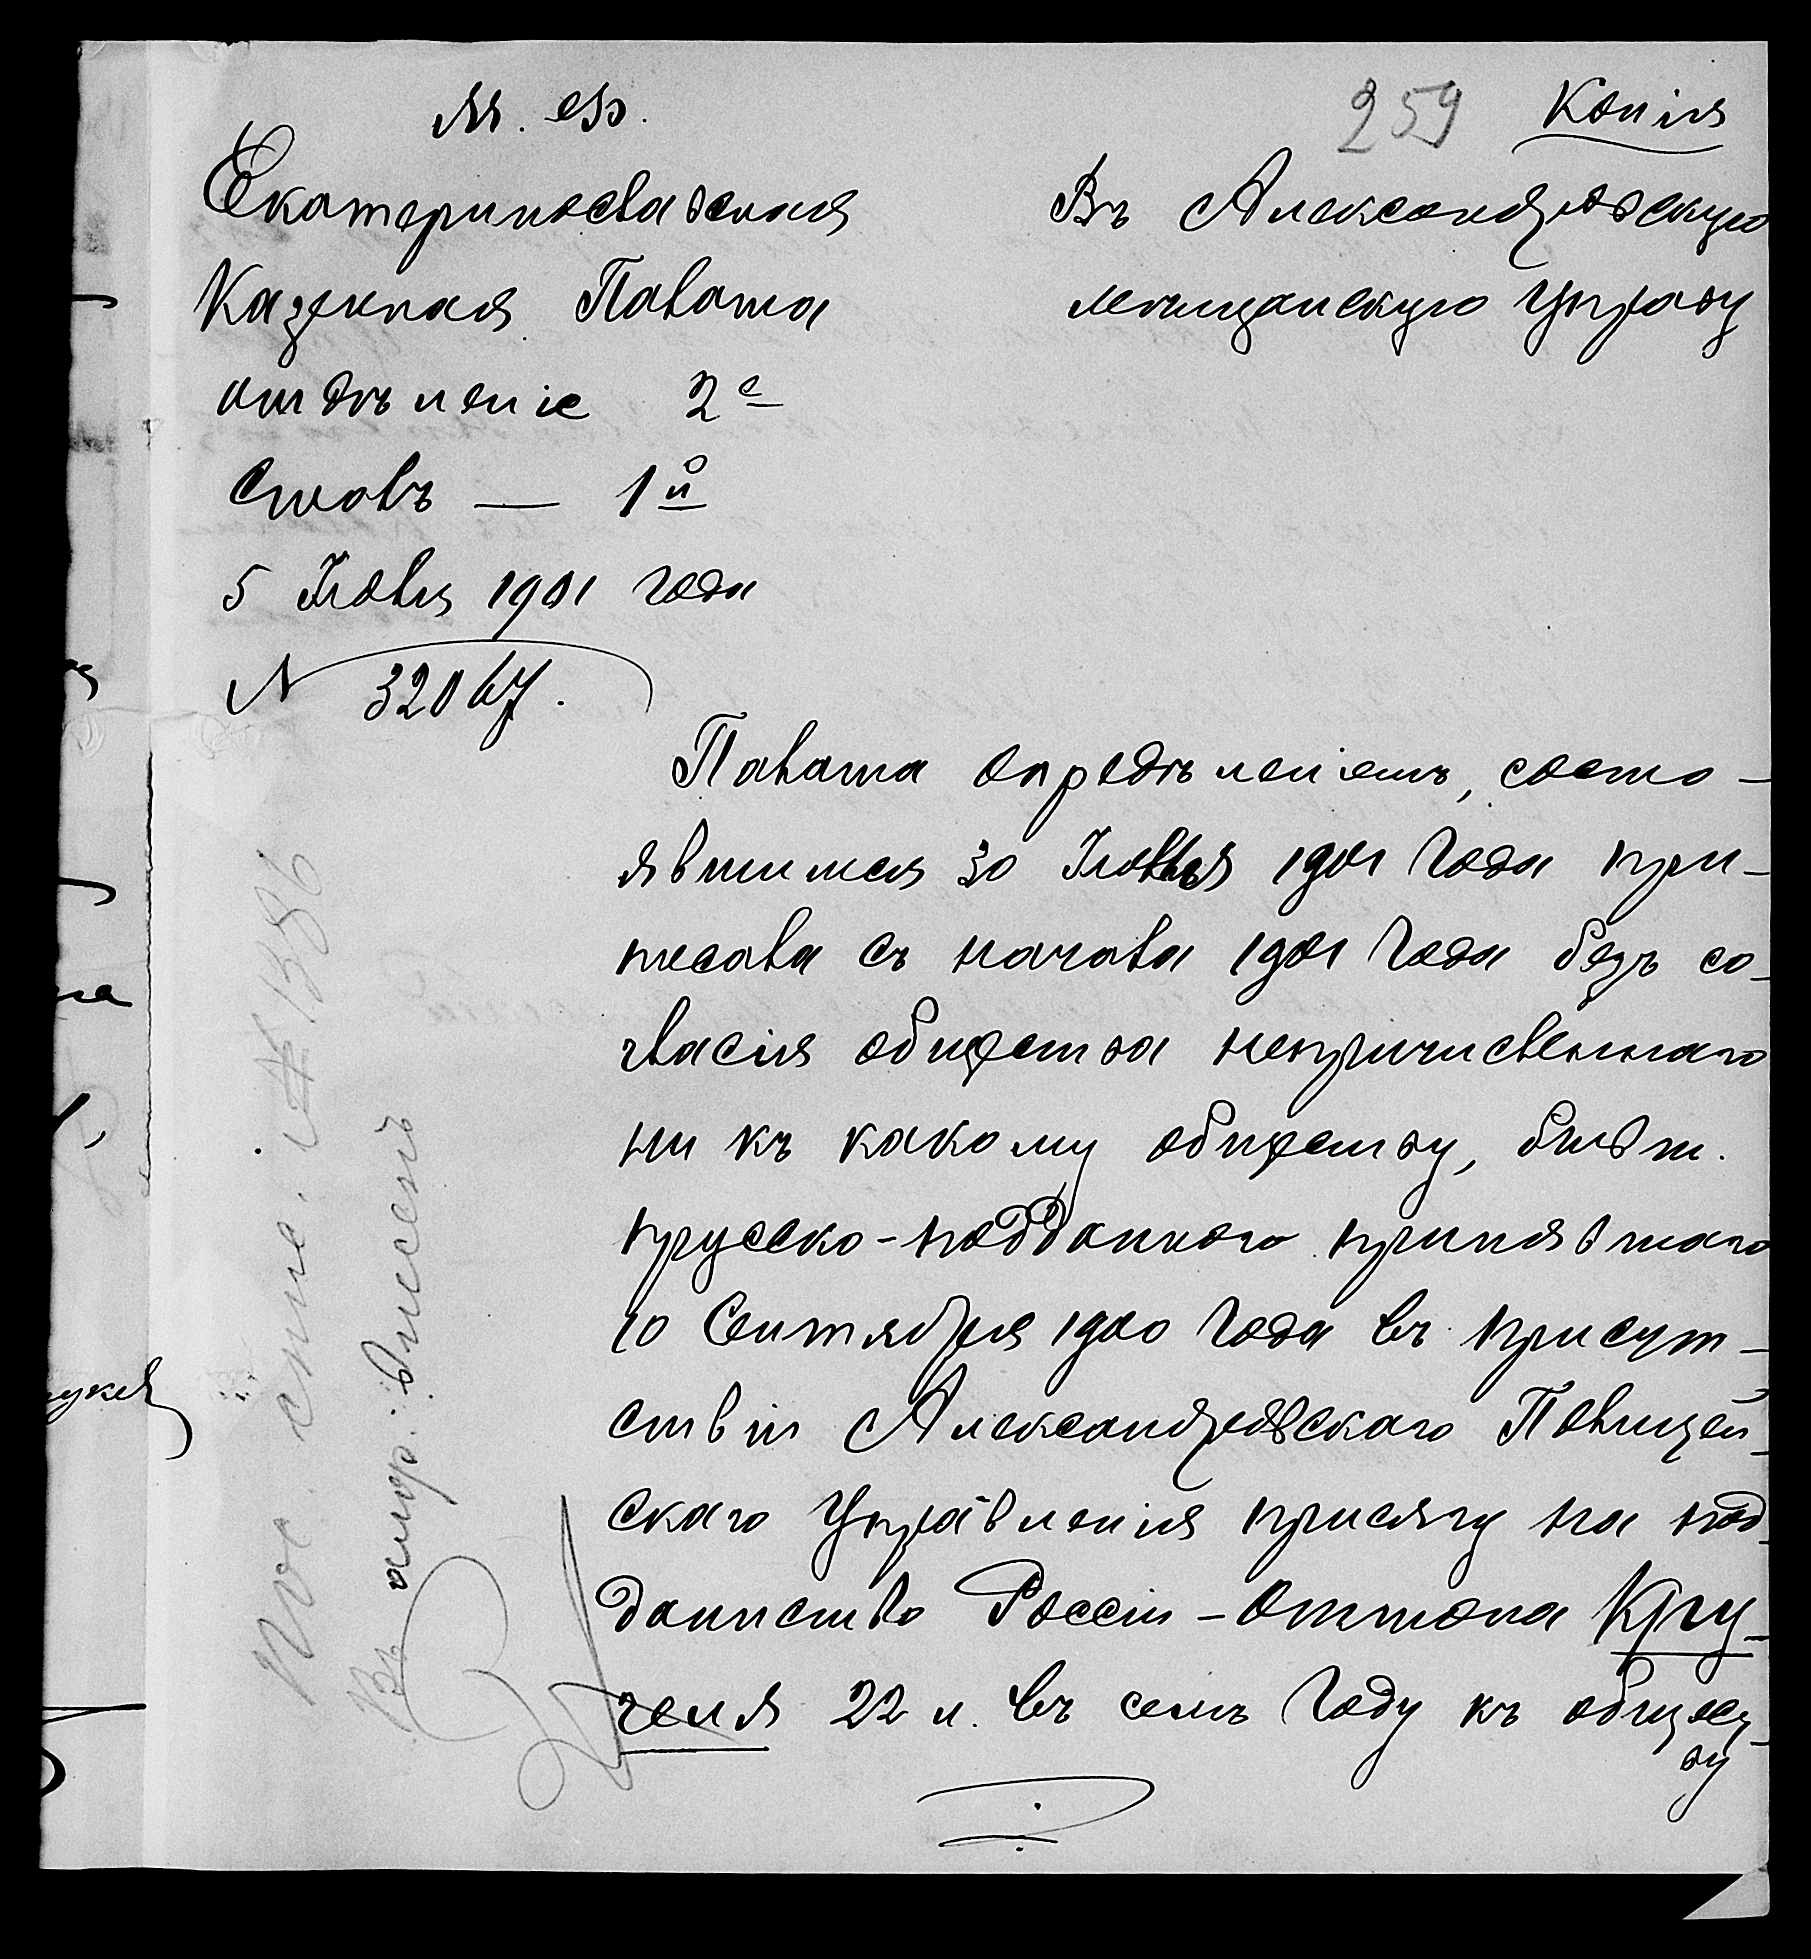 М. Ф.
259 Копія
Екатеринославская
Казенная Палата
отдѣленіе 2е
Столъ — 1й
5 Іюля 1901 года
N 32067.
Въ Александровскую
мѣщанскую Управу
Палата опредѣленіемъ, состо-
явшимся 30 Іюня 1901 года при-
писала съ начала 1901 года безъ со-
гласія общества непричисленнаго
ни къ какому обществу, бывш.
прусско-подданного принявшаго
10 Сентября 1900 года въ присут-
ствіи Александровскаго Полицей-
скаго Управленія присягу на под-
данство Россіи - Оттона Кру-
геля 22 л. въ семъ году къ общест-
ву
Пос. спис. № 1386
Въ алфав. внесенъ